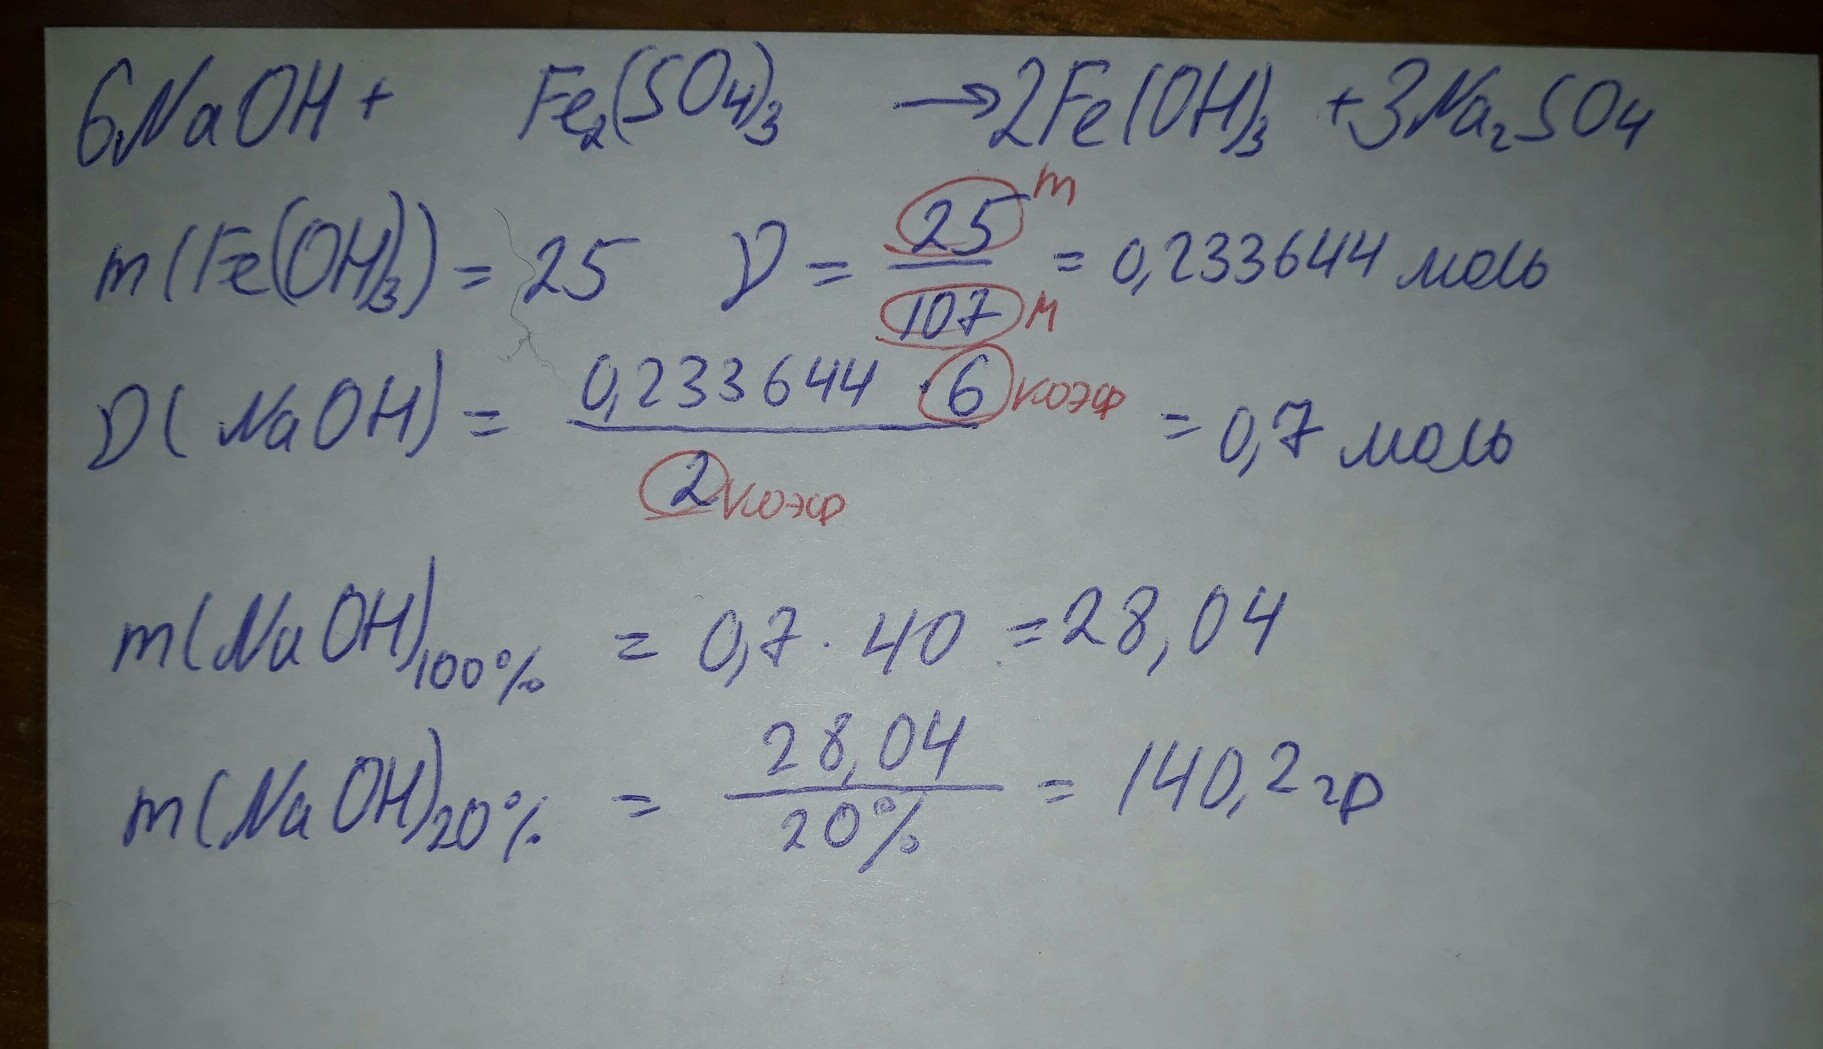 6NaOH + Fe₂(SO₄)₃ → 2Fe(OH)₃ + 3Na₂SO₄
m(Fe(OH)₃) = 25 ν = 25 m / 107 M = 0,233644 моль
ν(NaOH) = 0,233644 · 6 коэф / 2 коэф = 0,7 моль
m(NaOH)100% = 0,7 · 40 = 28,04
m(NaOH)20% = 28,04 / 20% = 140,2 гр